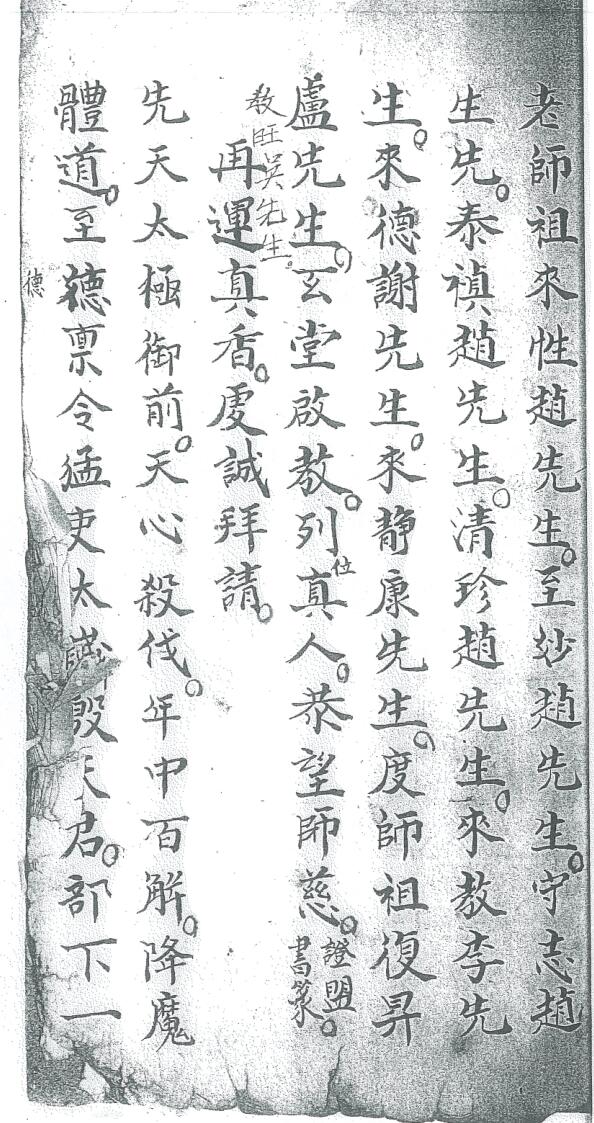 老師祖來性趙先生。至妙趙先生。守志趙
生先。泰禛趙先生。清珍趙先生。來教李先
生。來德謝先生。來靜康先生。度師祖復昇
盧先生。玄堂啟教。列位真人。恭望師慈。證盟書篆。
教旺吳先生。
再運真香。虔誠拜請。
先天太極御前。天心殺伐。年中百解。降魔
體道。至德稟令猛吏太歲殷天君。部下一
德